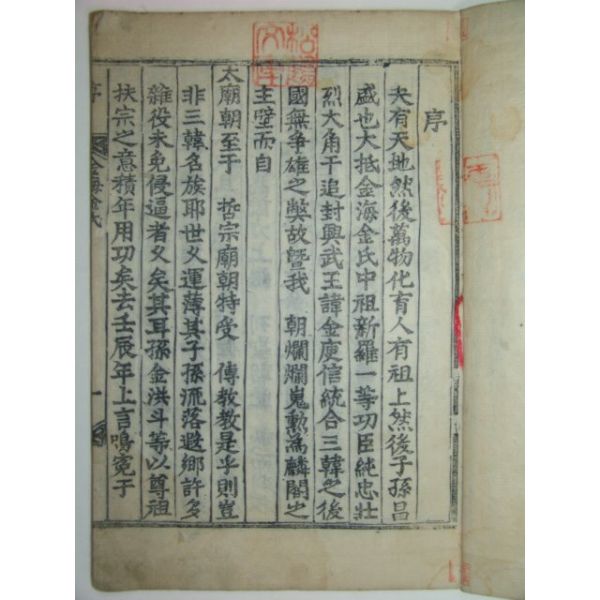 序
夫有天地然後萬物化育人有祖上然後子孫昌
盛也大抵金海金氏中祖新羅一等功臣純忠壯
烈大角干追封興武王諱金庾信統合三韓之後
國無爭雄之獘故曁我 朝爛爛嵬勳為麟閣之
主壁而自
太廟朝至于 哲宗廟朝特受 傳教教是乎則豈
非三韓名族耶世乂運薄其子孫流落遐鄉許多
雜役未免侵逼者乂矣其耳孫金洪斗等以尊祖
扶宗之意積年用功矣去壬辰年上言鳴寃于
序
金海金氏
一